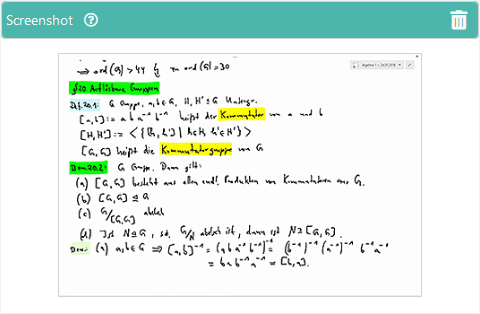 Screenshot
⇒ ord(G) > 44 ↯ zu ord(G) = 30
Algebra 1
§20. Auflösbare Gruppen
Def. 20.1: G Gruppe, a,b ∈ G, H, H' ≤ G Untergr.
[a,b] := a b a⁻¹ b⁻¹ heißt der Kommutator von a und b
[H,H'] := < { [h,h'] | h∈H, h'∈H' } >
[G,G] heißt die Kommutatorgruppe von G
Bem. 20.2: G Grupp. Dann gilt:
(a) [G,G] besteht aus allen endl. Produkten von Kommutatoren aus G.
(b) [G,G] ⊴ G
(c) G/[G,G] abelsch
(d) Ist N ⊴ G, sd. G/N abelsch ist, dann ist N ≥ [G,G].
Bew: (a) a,b ∈ G ⇒ [a,b]⁻¹ = (a b a⁻¹ b⁻¹)⁻¹ = (b⁻¹)⁻¹ (a⁻¹)⁻¹ b⁻¹ a⁻¹
= b a b⁻¹ a⁻¹ = [b,a].